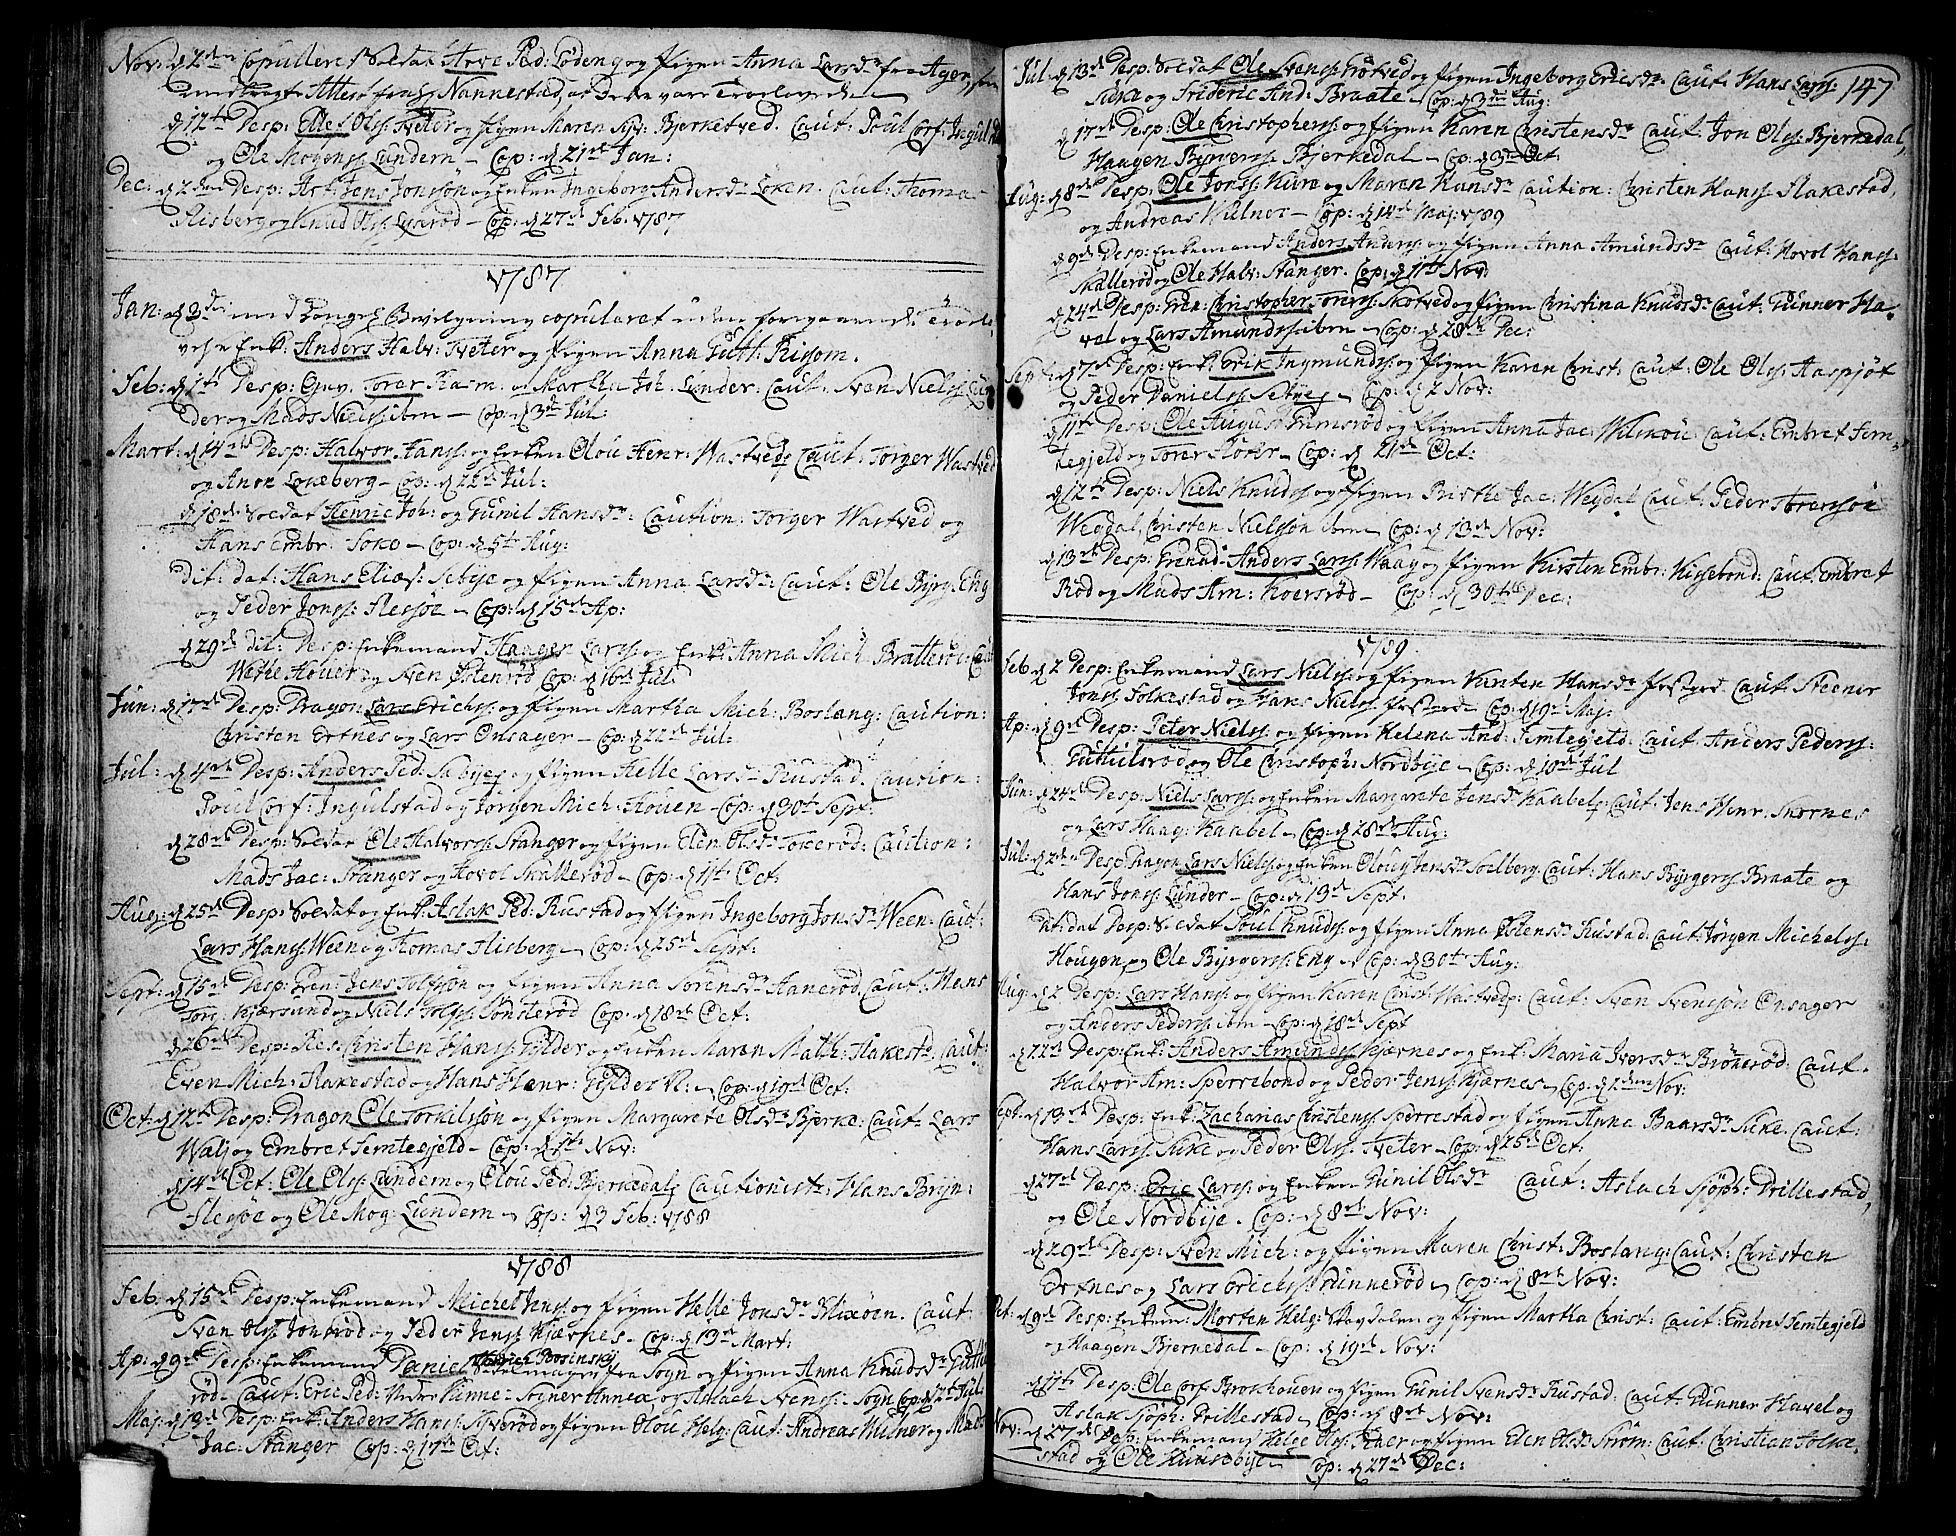 Nov: d 2den Copulleret Soldat Arve Ped: Lødeng og Pigen Anna Larsdr fra Ager, som
Attest fra Nannestad, at Dette vare Troelovede
d 12te Desp: Elles Ols: Tveter og Pigen Maren Siv: Bjerketved. Caut: Poul Corf: Ingulstad
og Ole Mogens: Lundern – Cop: d 21de Jan:
Dec: d 2den Desp: Art: Jens Jonsøn og Enken Ingeborg Andersdr Løken. Caut: Thomas
Risberg og Knud Ols: Lyserød – Cop: d 27de Feb: 1787
1787
Jan: d 3die med Konge: Bevilgning copuleret uden foregaaende Troelo-
velse Enk: Anders Halv: Tveter og Pigen Anna Gutt: Risom.
Feb: d 1ste Desp: Gev. Torer Rasm. og Martha Joh: Lunder: Caut: Sven Niels: Lun-
der og Mads Niels: ibm – Cop: d 3die Jul:
Mart: d 14de Desp: Halvor Hans: og Enken Olou Henr: Wastved, Caut: Torger Wastved
og Anon Lokeberg – Cop: d 22de Jul:
d 18de Soldat Henric Joh: og Gunil Hansdr: Caution: Torger Wastved og
Hans Embr: Toko – Cop: d 5te Aug:
Dit: dat: Hans Elias: Sebye og Pigen Anna Larsdr: Caut: Ole Byrg: Eng
og Peder Jons: Flessøe – Cop: d 15de Ap:
d 29de dit: Desp: Enkemand Haagen Lars: og Enk: Anna Mich: Bratterød: Caut:
Wethe Houer og Sven Østenrød Cop: d 16de Jul:
Jun: d 17de Desp: Dragon Lars Erichs: og Pigen Martha Mich: Boslang: Caution:
Christen Ertnes og Lars Onsager – Cop: d 22de Jul:
Jul: d 4de Desp: Anders Ped: Sebye og Pigen Helle Larsdr Rustad. Caution:
Poul Corf: Ingulstad og Jørgen Mich: Houen – Cop: d 30te Sept:
d 28de Desp: Soldat Ole Halvors: Stanger og Pigen Elen Olsdr Tokerød: Caution:
Mads Jac: Stanger og Hovol Skallerød – Cop: d 11te Oct:
Aug: d 25de Desp: Soldat og Enk: Aslak Ped: Rustad og Pigen Ingeborg Jonsdr Ween: Caut:
Lars Hans: Ween og Thomas Risberg – Cop: d 25de Sept:
Sept: d 15de Desp: Gren: Jens Tolfsøn og Pigen Anna Sørensdr Haanerød, Caut: Hans
Torg: Kjærsund og Niels Tolfs: Tønsterød Cop: d 18de Oct:
d 26de Desp: Res: Christen Hans: Gylder og Enken Maren Math: Flakestd, Caut:
Even Mich: Flakestad og Hans Henr: Gylder – Cop: d 19de Oct:
Oct: d 12te Desp: Dragon Ole Torkilssøn og Pigen Margarete Olsdr Bjerke: Caut: Lars
Walj og Embret Semtegjeld – Cop: d 1ste Nov:
d 14de Oct: Ole Ols: Lundern og Olou Ped: Bjerkedal; Cautionist: Hans Bryn:
Flessøe og Ole Mog: Lundern – Cop: d 3 Feb: 1788
1788
Feb: d 15de Desp: Enkemand Michel Jens: og Pigen Helle Jonsdr Blixøen. Caut:
Sven Ols: Jonsrød og Peder Jens: Kjærnes – Cop: d 13de Mart:
Ap: d 9de Desp: Enkemand Daniel Henrich Bosinsky fra Sogn og Pigen Anna Knudsdr Guttu-
rød – Caut: Eric Ped: Kinne – Sogner Annex, og Aslach Svens: – Sogn Cop: d 12te Juli
Maj: d 13de Desp: Enk: Anders Hans: Syverød og Pigen Olou Helg: Caut: Andreas Wulner og Mads
Jac: Stanger Cop: d 17de Oct:
147
Jul: d 13de Desp: Soldat Ole Svens: Grøtved og Pigen Ingeborg Ericsdr: Caut: Hans Lars:
Suke og Frideric And: Braate – Cop: d 3die Aug:
d 17de Desp: Ole Christophers: og Pigen Karen Christensdr Caut: Jon Ols: Bjerkedal,
Haagen Byrgers: Bjerkedal – Cop: d 3de Oct:
Aug: d 8de Desp: Ole Jons: Kure og Maren Hansdr Caution: Christen Hans: Flakestad,
og Andreas Wulner – Cop: d 14de Maj: 1789
d 9de Desp: Enkemand Anders Anders: og Pigen Anna Amundsdr Caut: Hovol Hans:
Skallerød og Ole Halv: Stanger. Cop: d 11te Nov
d 24de Desp: Gren: Christopher Torers: Skotved og Pigen Christina Knudsdr Caut: Gunner Ha-
vel og Lars Amunds: ibm – Cop: d 28de Dec:
Sept: d 7de Desp: Enk: Erik Ingmunds: og Pigen Karen Christ: Caut: Ole Ols: Haspjøt
og Peder Daniels: Sebye – Cop: d 2 Nov:
d 11te Desp: Ole August: Grimsrød og Pigen Anna Jac: Wilskou Caut: Embret Sem-
tegjeld og Torer Huser – Cop: d 21de Oct:
d 12te Desp: Niels Knuds: og Pigen Birthe Jac: Wegdal Caut: Peder Torersøn
Wegdal, Christen Nielsøn ibm – Cop: d 13de Nov:
d 13de Desp: Grenad: Anders Lars: Waag og Pigen Kirsten Embr: Kissebond: Caut: Embret
Rød og Mads Am: Koersrød – Cop: d 30te Dec:
1789
Feb: d 2 Desp: Enkemand Lars Niels: og Pigen Kirsten Hansdr Caut: Steener
Jons: Folkestad og Hans Niels: – Cop: d 19de Maj:
Ap: d 9de Desp: Peter Niels: og Pigen Helena And: Semtegjeld. Caut: Anders Peders:
Guttulsrød og Ole Christoph: Nordbye – Cop: d 10de Jul
Jun: d 24de Desp: Niels Lars: og Enken Margarete Jensdr Kaabel; Caut: Jens Henr: Snornes
og Lars Haag: Kaabel – Cop: d 28de Aug:
Jul: d 2den Desp: Dragon Lars Niels: og Enken Oloug Jensdr Soelberg. Caut: Hans Byrgers: Braate og
Hans Jons: Lunder – Cop: d 13de Sept.
dit: dat Desp: Soldat Poul Knuds: og Pigen Anna Østensdr Rustad. Caut: Jørgen Michels:
Hougen og Ole Byrgers: Eng – Cop: d 30te Aug:
Aug: d 2 Desp: Lars Hans: og Pigen Karen Christ: Wastved: Caut: Sven Svensøn Onsager
og Anders Peders: ibm – Cop: d 18de Sept
d 22de Desp: Enk: Anders Amunds: Kjærnes og Enk: Maria Iversdr Brønerød: Caut:
Halvor Am: Sperrebond og Peder Jens: Kjærnes – Cop: d 2den Nov:
Sept: d 13de Desp: Enk: Zacharias Christens: Sperrestad og Pigen Anne Baarsdr Suke. Caut:
Hans Lars: Suke og Peder Ols: Tveter – Cop: d 25de Oct:
d 27de Desp: Eric Lars: og Enken Gunil Olsdr Caut: Aslach Sjøph: Drillestad,
og Ole Nordbye – Cop: d 8de Nov:
d 29de Desp: Sven Mich: og Pigen Maren Christ: Boslang: Caut: Christen
Ertnes og Lars Erichs: Gunnerød – Cop: d 8de Nov:
Oct: d 9de Desp: Enkem: Morten Helg: Skovdalen og Pigen Martha Christ: Caut: Embret Semtegjeld
og Haagen Bjernedal – Cop: d 19de Nov:
d 11te Desp: Ole Corf: Brokhouen og Pigen Gunil Svensdr Rustad: Caut: Gunner Havel og
Aslak Sjøph: Drillestad – Cop: d 8de Nov:
Nov: d 27de Desp: Enkemand Helge Ols: Kaer og Pigen Elen Olsdr Strøm: Caut: Christian Folke-
stad og Ole Huusebye – Cop: d 27de Dec: